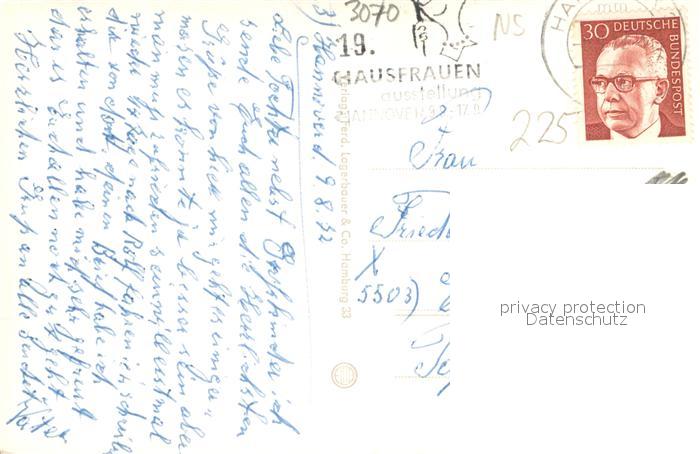 3) Hannover d. 9.8.72
Liebe Tochter nebst
sende Euch allen die herzlichsten
Grüße von hier mir geht es einiger-
maßen es könnte ja besser sein aber
man muß zufrieden sein
nach Rolf fahren ich schreibe
dir von dort deinen Brief habe ich
erhalten und habe mich sehr gefreut
das es Euch allen noch gut geht
Herzlichen Gruß an alle
3070
NS
19.
HAUSFRAUEN
ausstellung
HANNOVER 9.9.-17.9.
HA
30 DEUTSCHE
BUNDESPOST
225
Frau
Fried
X
5503)
Verlag Ferd. Lagerbauer & Co. Hamburg 33
privacy protection
Datenschutz